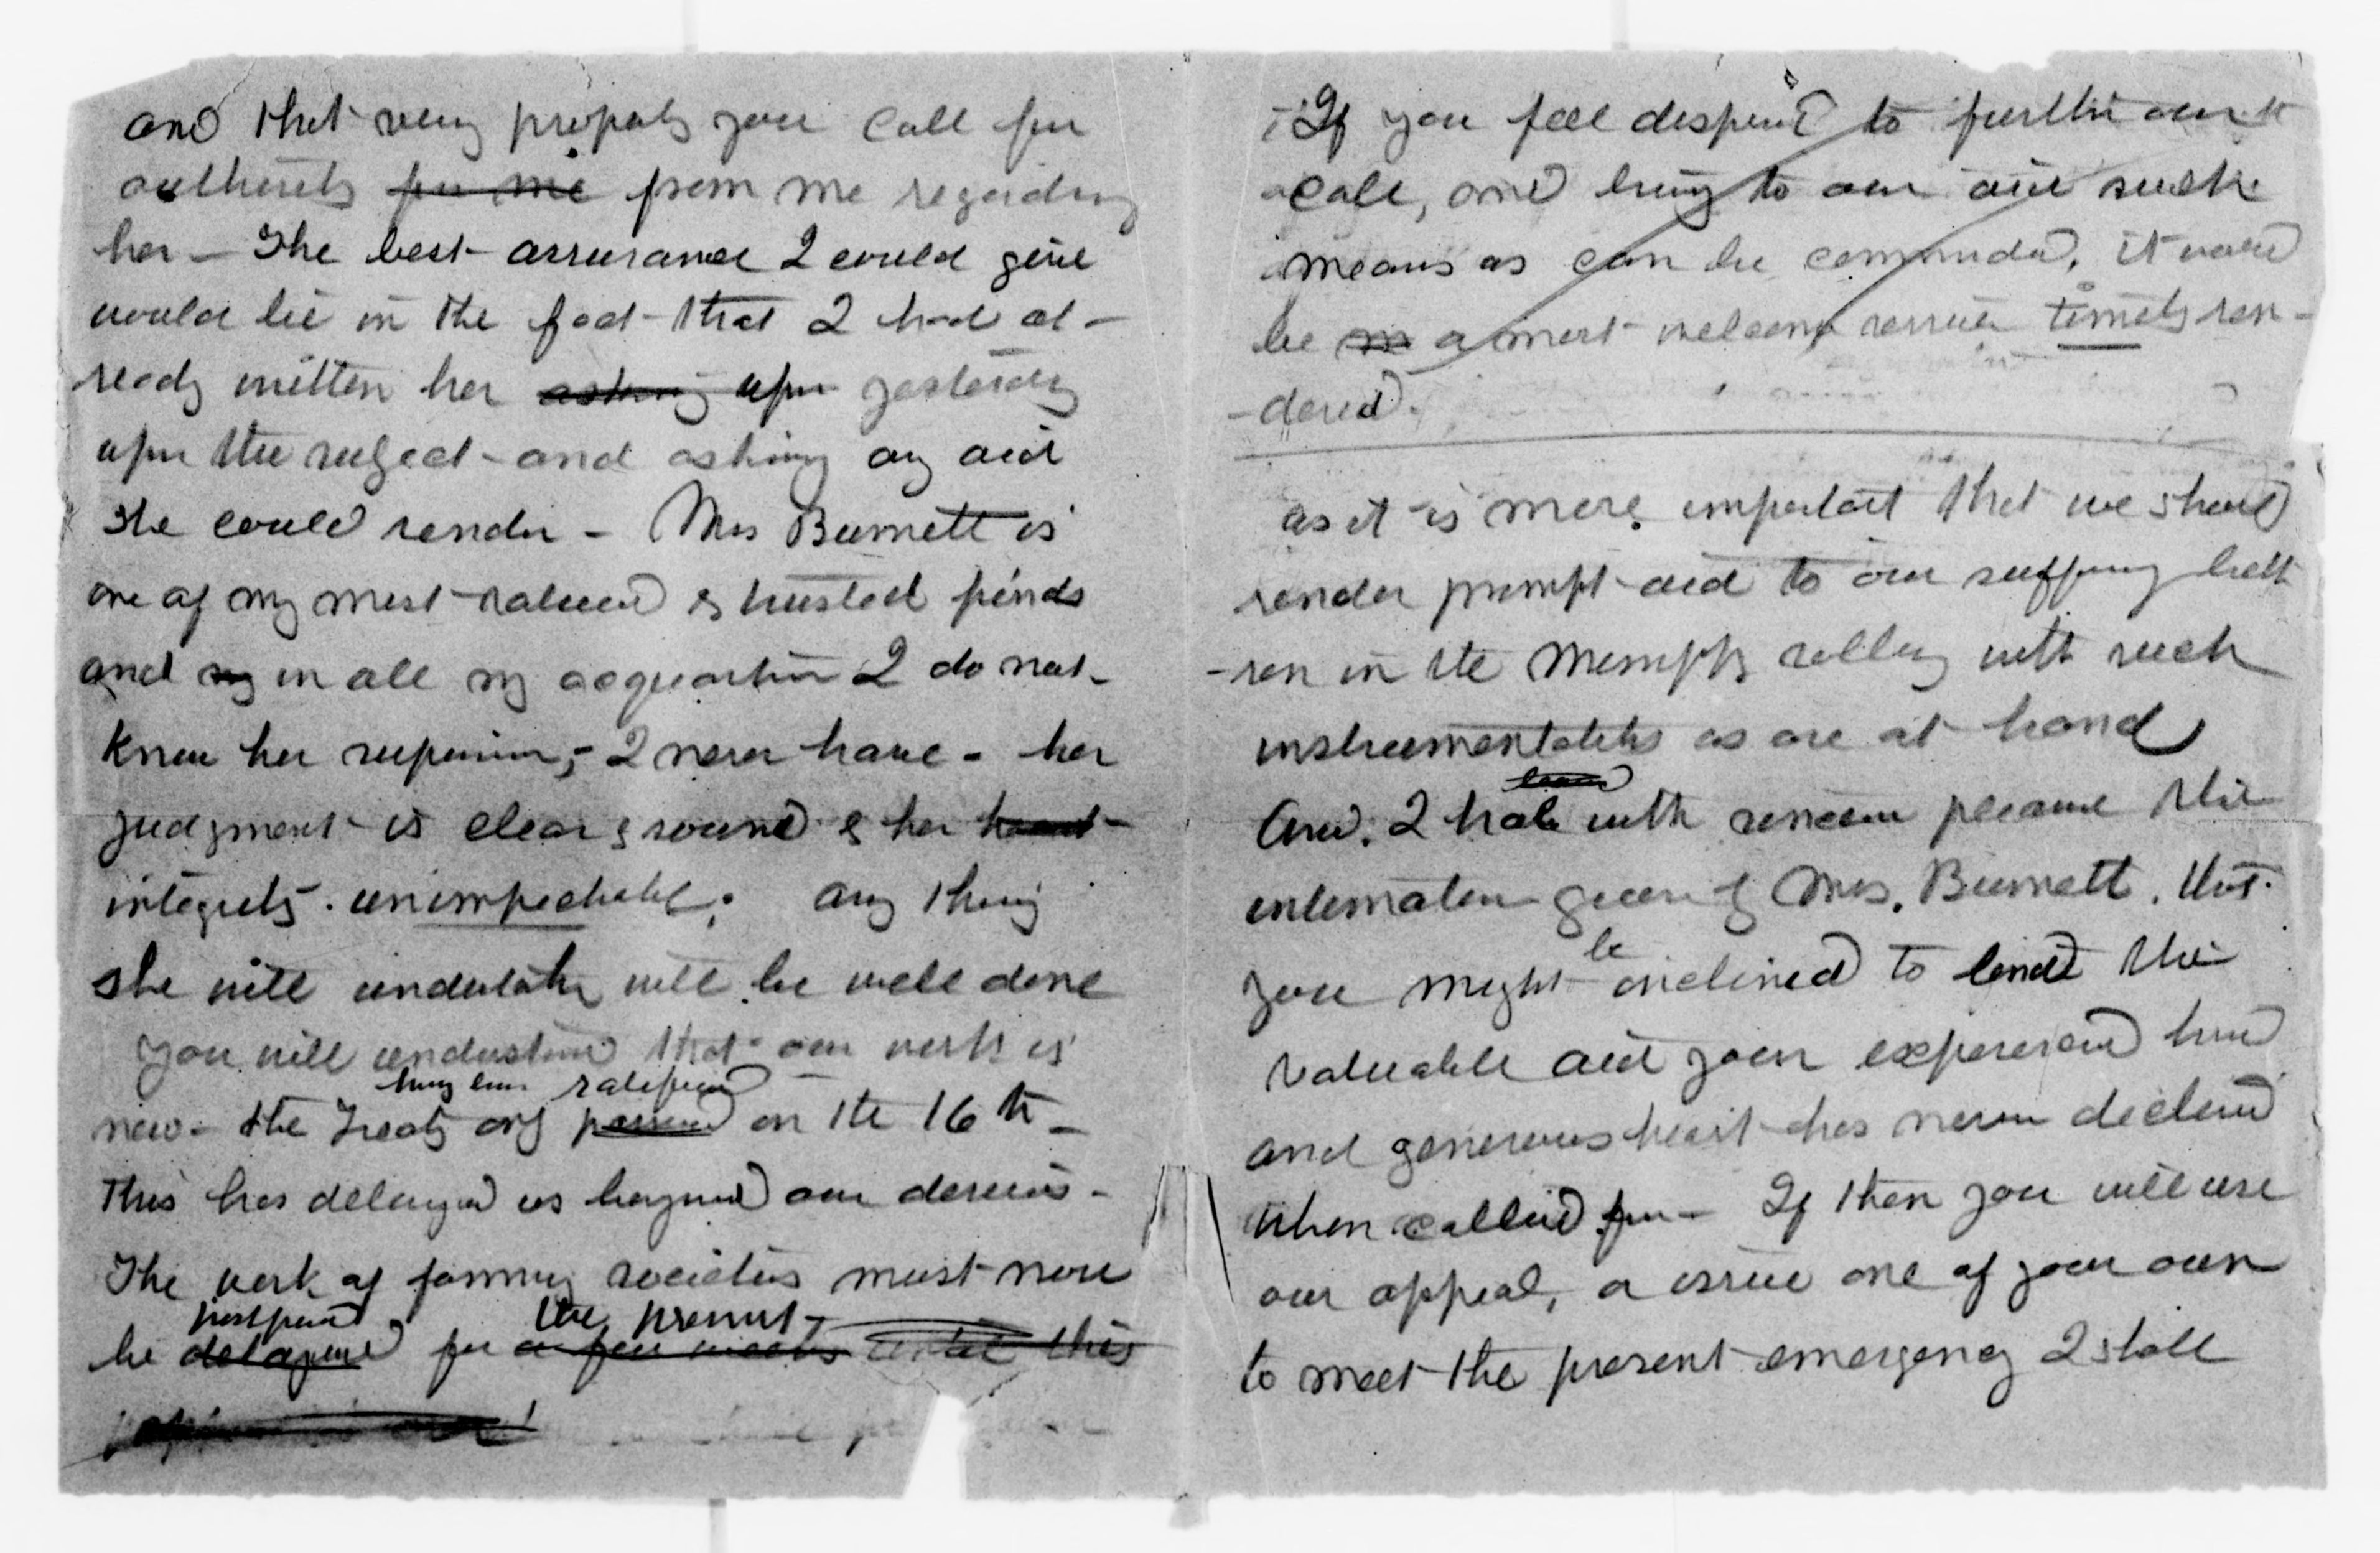 and that very properly you call for
authority for me from me regarding
her – The best assurance I could give
would lie in the fact that I had al-
ready written her asking upon yesterday
upon the subject – and asking any aid
she could render – Mrs Burnett is
one of my most valued & trusted friends
and my in all my acquaintance I do not
know her superior, – I never have – her
judgment is clear & sound & her heart
integrity unimpeachable; any thing
she will undertake will be well done
You will understand that our work is
having been ratified
new – the Treaty only passed on the 16th –
This has delayed us beyond our desires –
The work of forming societies must now
postponed the present,
be delayed for a few weeks until this
If you feel disposed to further our
call, and bring to our aid such
means as can be commanded, it would
be a most welcome service timely ren-
dered.
as it is more important that we should
render prompt aid to our suffering breth
-ren in the Mississippi valley with such
instrumentalities as are at hand
And. I hail with sincere pleasure the
intimation given by Mrs. Burnett. that
be
you might inclined to lend the
valuable aid your experienced hand
and generous heart has never declined
when called for – If then you will use
our appeal, or issue one of your own
to meet the present emergency I shall